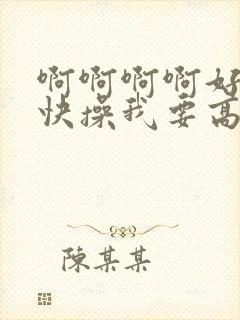 啊啊啊啊好
快操我要高
陳某某